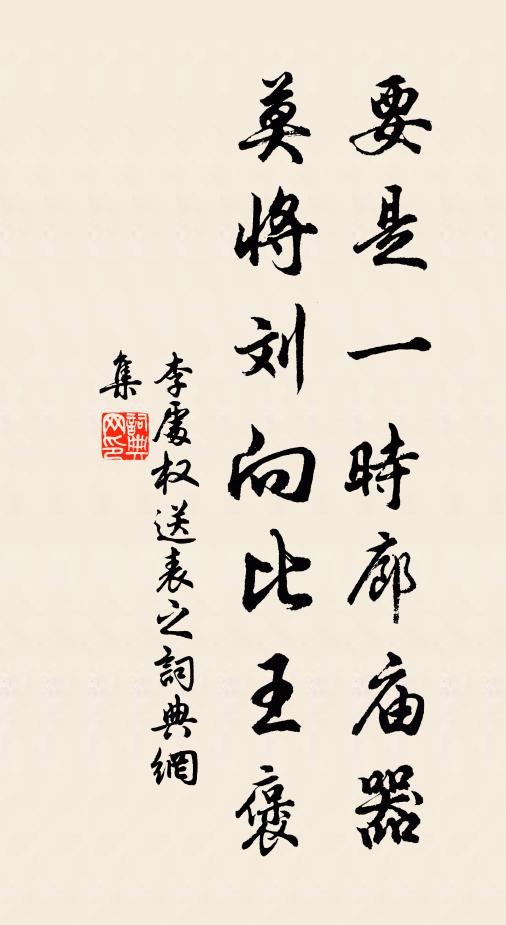 要是一時廊庙器
莫將刘向比王褒
李處权送表之詞典網
集
詞典
网印